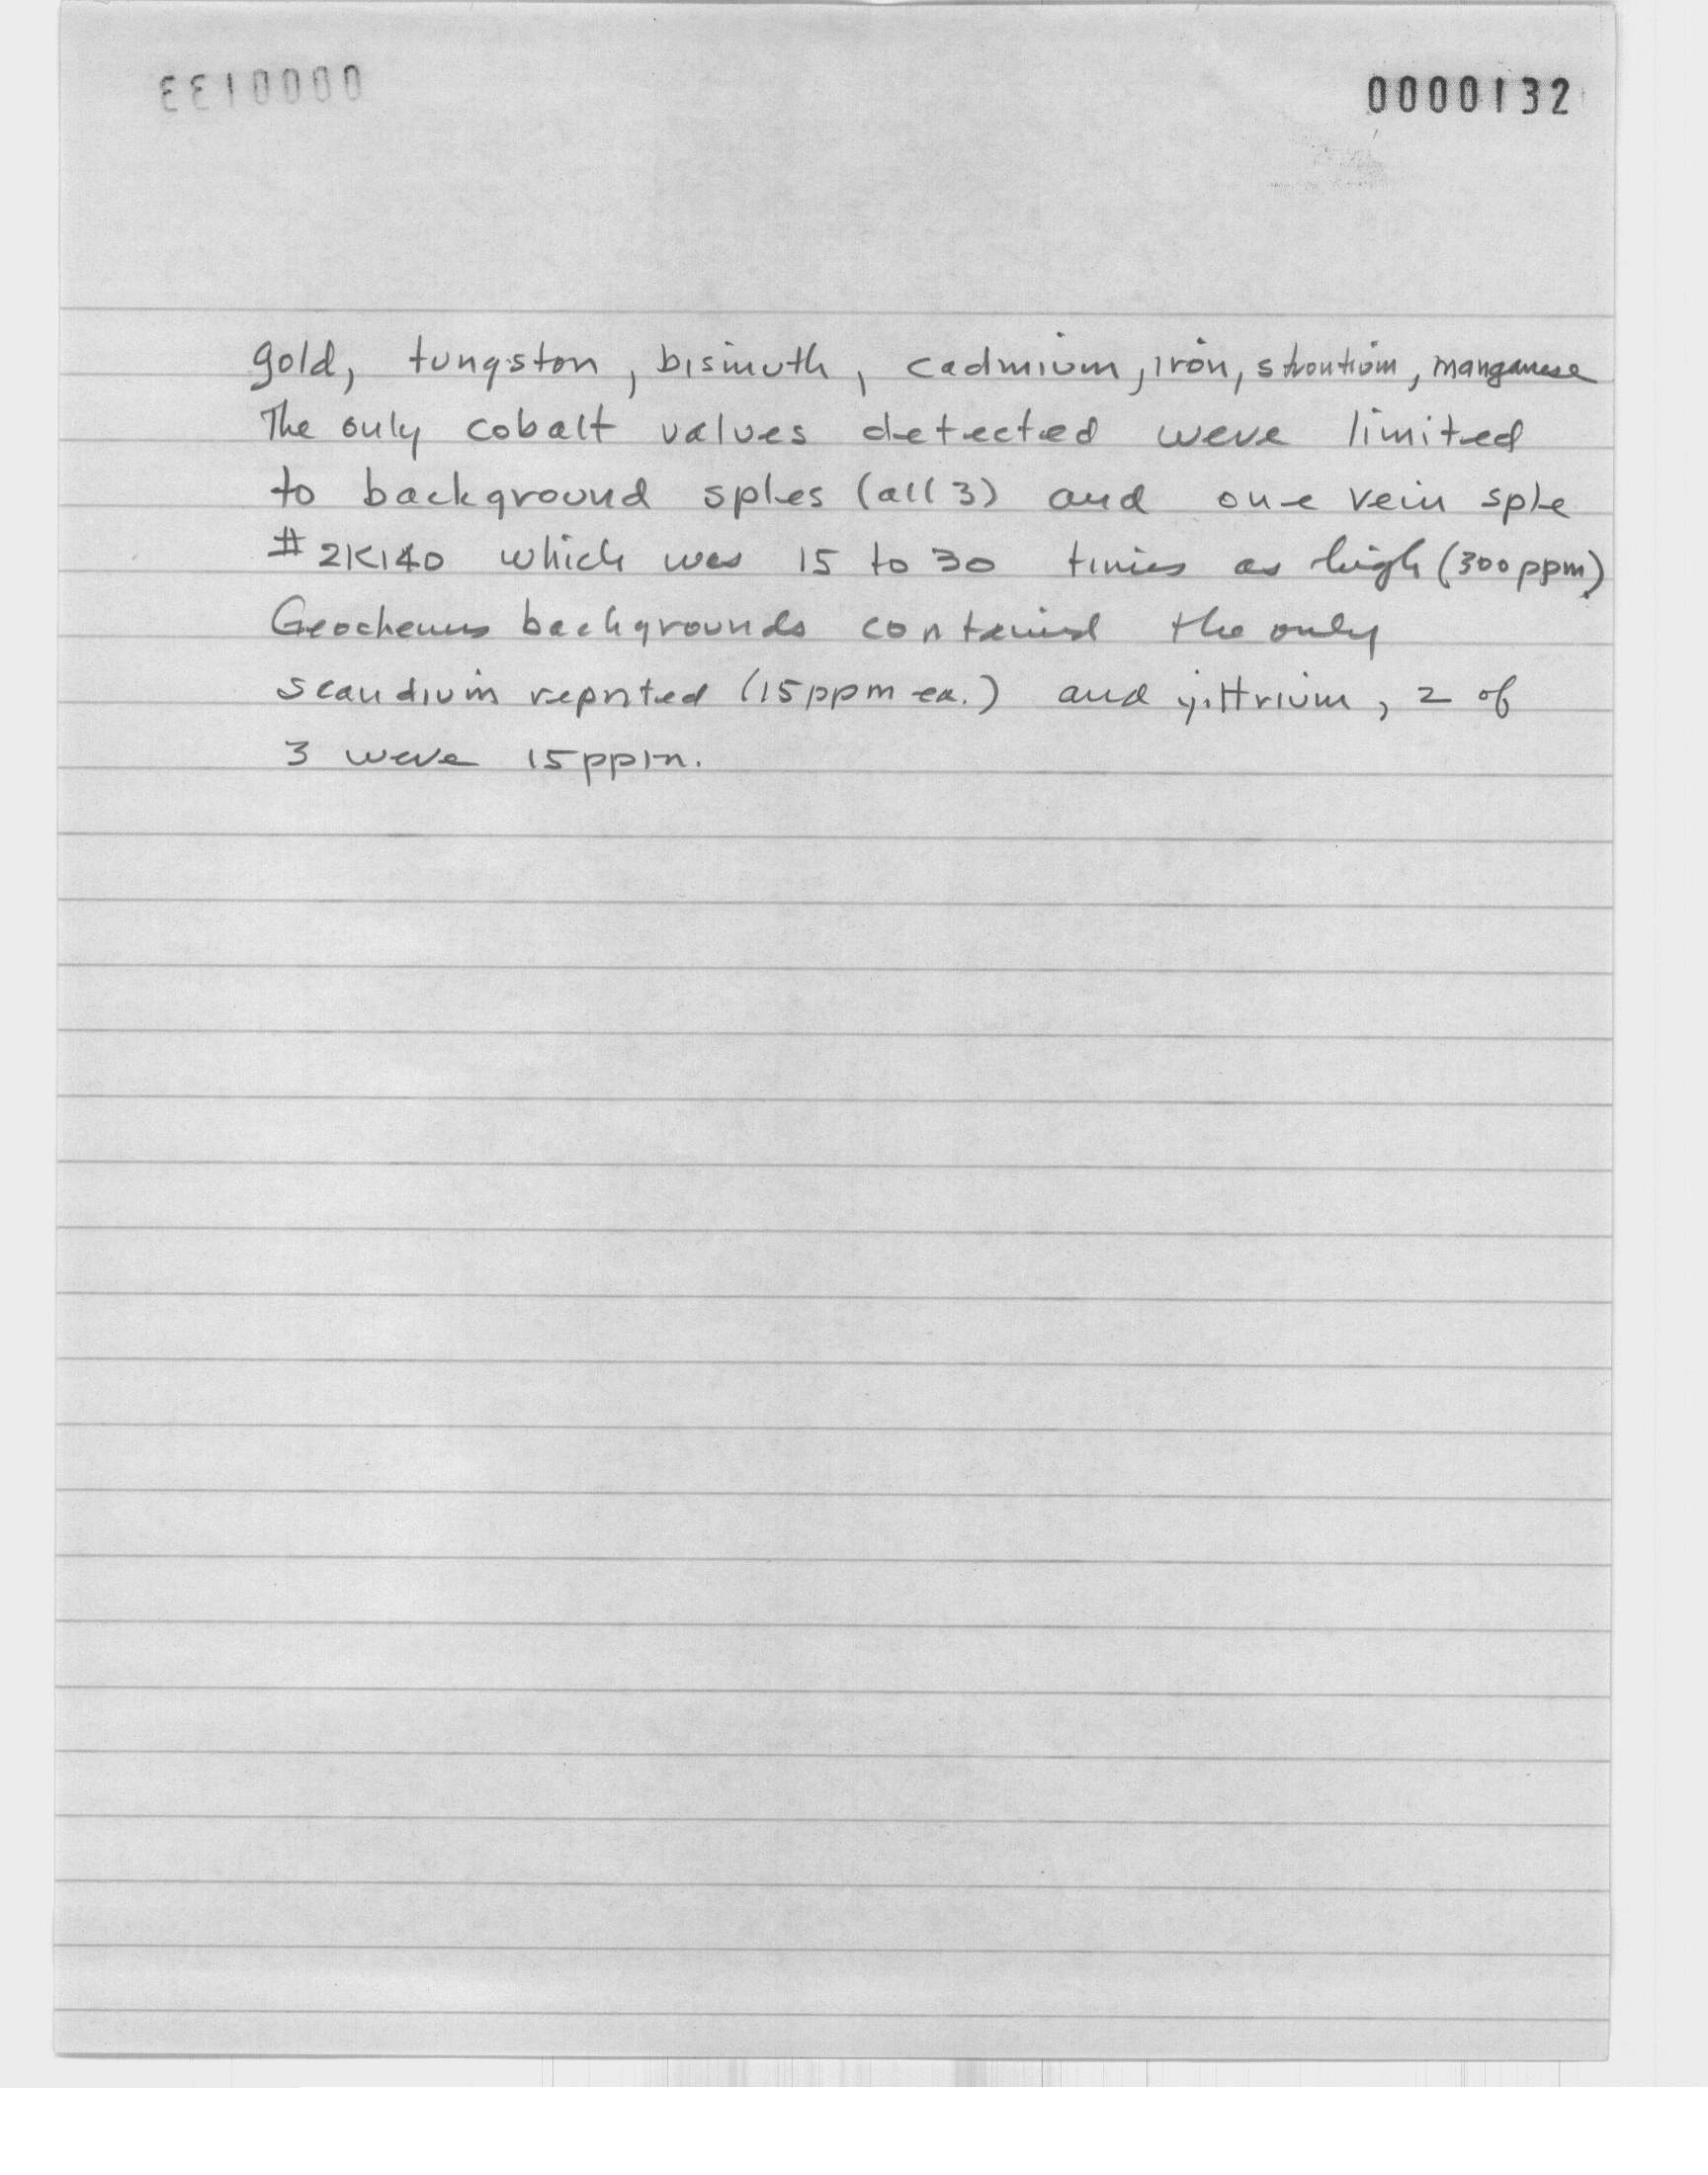 0000133
0000132
gold, tungston, bismuth, cadmium, iron, strontium, manganese
The only cobalt values detected were limited
to background sples (all 3) and one vein sple
#2K140 which was 15 to 30 times as high (300 ppm).
Geochems backgrounds contained the only
scandium reported (15 ppm ea.) and yittrium, 2 of
3 were 15 ppm.